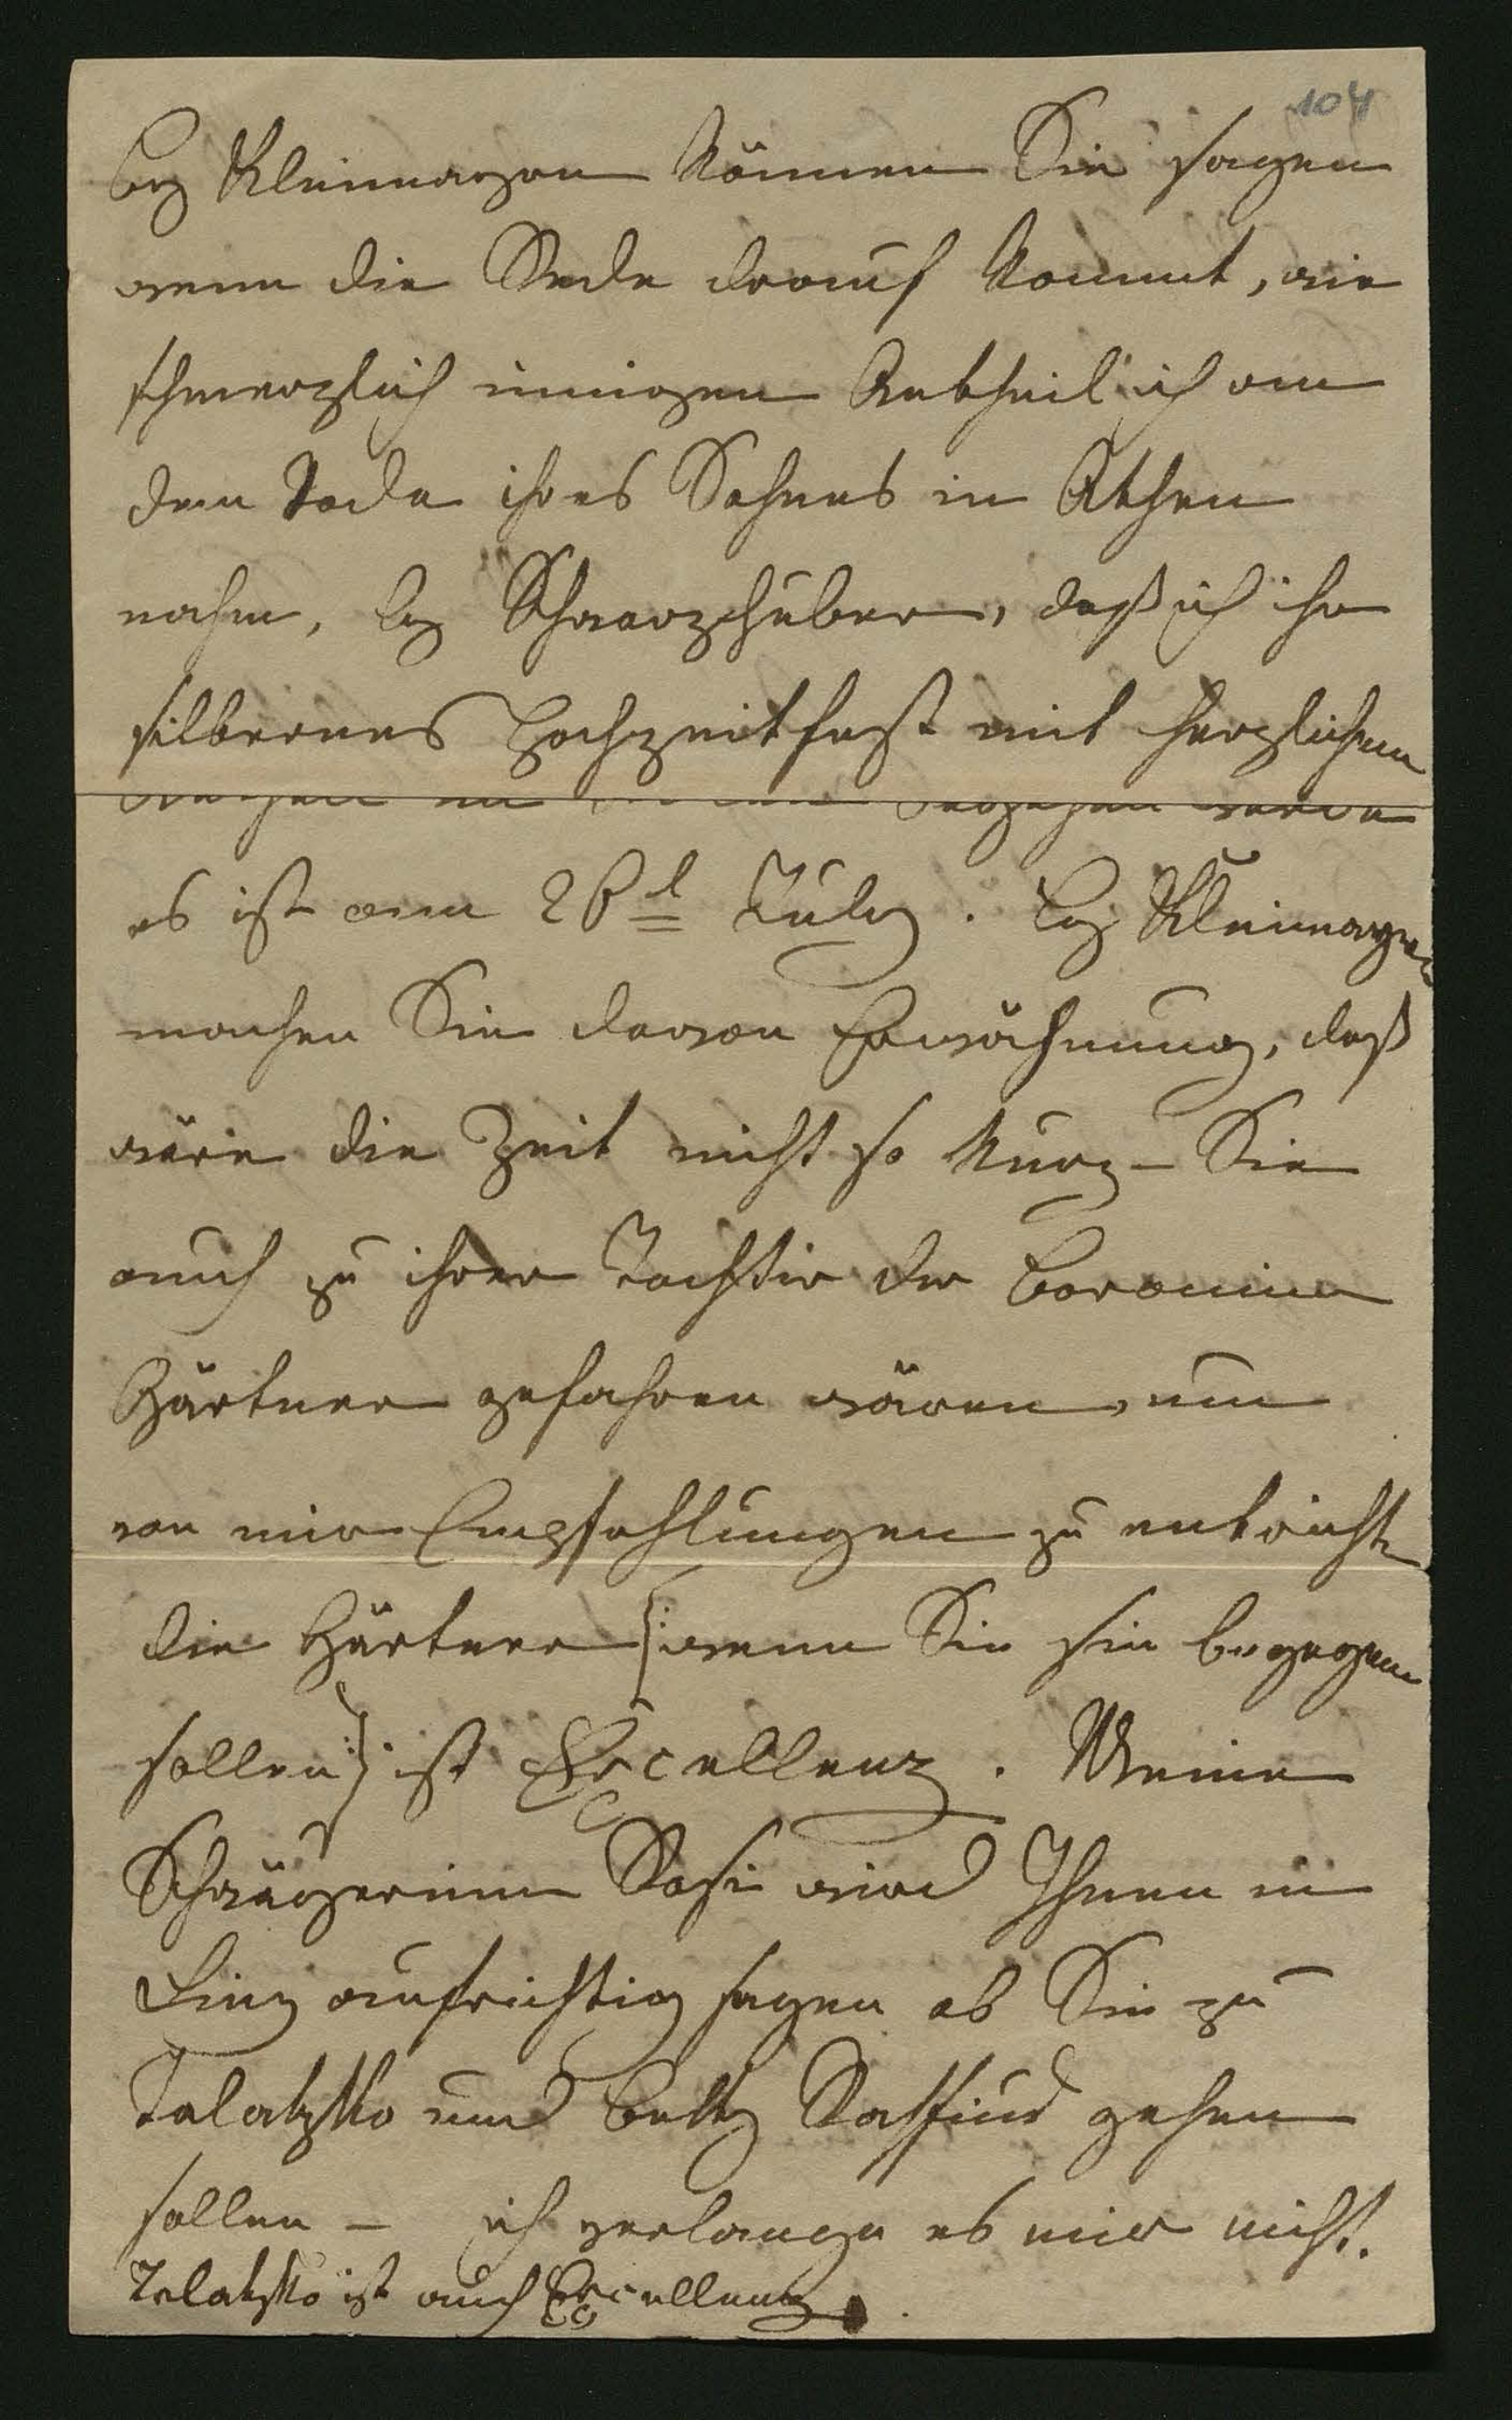 104
bey Kleimayrn können Sie sagen
wenn die Rede darauf kommt, wie
schmerzlich innigen Antheil ich an
dem Tode ihres Sohnes in Athen
nahm, bey Schwarzhuber, daß ich ihr
silbernes Hochzeitfest mit herzlichem
begehen werde
es ist am 28t July. Bey Kleimayrn
machen Sie davon Erwähnung, daß
wäre die Zeit nicht so kurz – Sie
auch zu ihrer Tochter der Baronin
Gärtner gefahren wären, um
von mir Empfehlungen zu entrichten
die Gärtner |: wenn Sie sie begegnen
sollen :| ist Excellenz. Meine
Schwägerinn wird Ihnen in
Linz aufrichtig sagen ob Sie zu
Talatzko und Betty gehen
sollen – ich verlange es mir nicht.
Talatzko ist auch Excellenz.